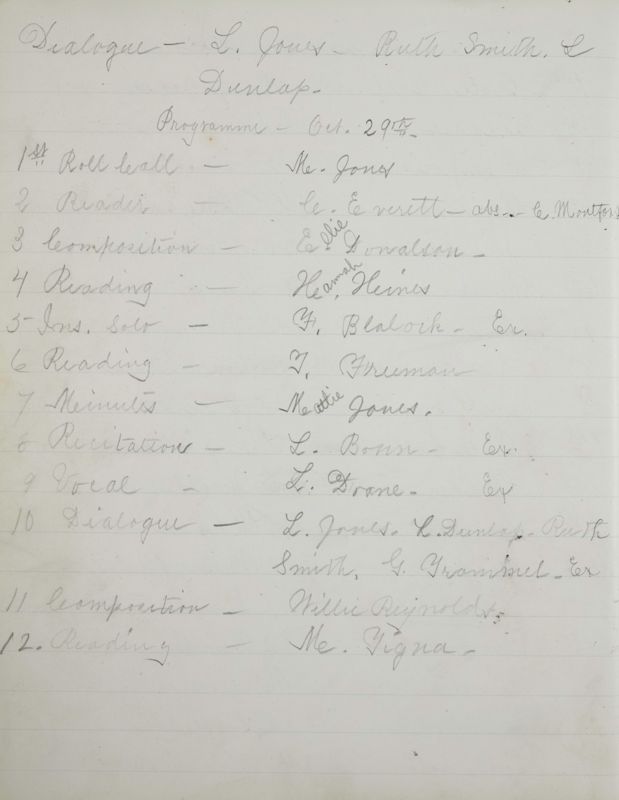 Dialogue - L. Jones - Ruth Smith. L
Dunlap -
Programme - Oct. 29th -
1st Roll Call - M. Jones
2 Reader - C. Everett - abs. - C. Montfort
3 Composition - Ellie Donalson -
4 Reading - Hannah Heines
5 - Ins. Solo - F. Blalock - Ex.
6 Reading - T. Freeman
7 Minutes - Mattie Jones.
8 Recitation - L. Bonn - Ex.
9 Vocal - L. Doane - Ex
10 Dialogue - L. Jones - L. Dunlap - Ruth
Smith, G. Trammel - Ex
11 Composition - Willie Reynolds
12. Reading - M. Tigna -